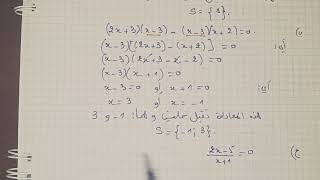 S = {3}.
(2x+3)(x-3) - (x-3)(x+2) = 0
أي: (x-3)[(2x+3) - (x+2)] = 0
(x-3)(2x+3-x-2) = 0
(x-3)(x+1) = 0
أي: x-3=0 او x+1=0
x=3 او x=-1
هذه المعادلة تقبل حلين و هما: -1 و 3
S = {-1; 3}.
ج) (2x-5)/(x+1) = 0